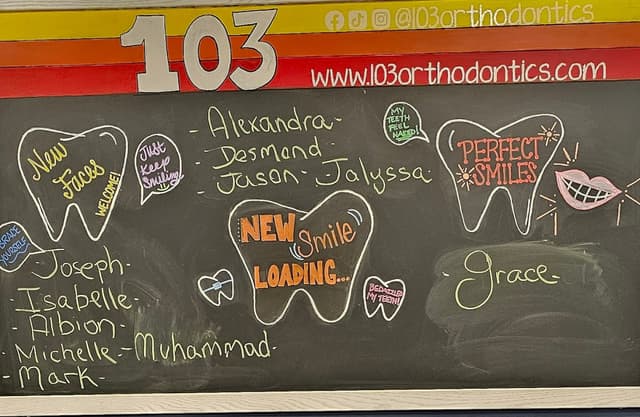 103
@103orthodontics
www.103orthodontics.com
New
Faces
WELCOME!
Just
Keep
Smiling
BRACE
YOURSELF
Joseph-
-Isabelle-
-Albion-
-Michelle--Muhammad-
-Mark-
-Alexandra-
-Desmond-
-Jason-Jalyssa-
NEW
Smile
LOADING...
BEDAZZLED
MY TEETH!
MY
TEETH
FEEL
NAKED!
PERFECT
SMILES
-Grace-